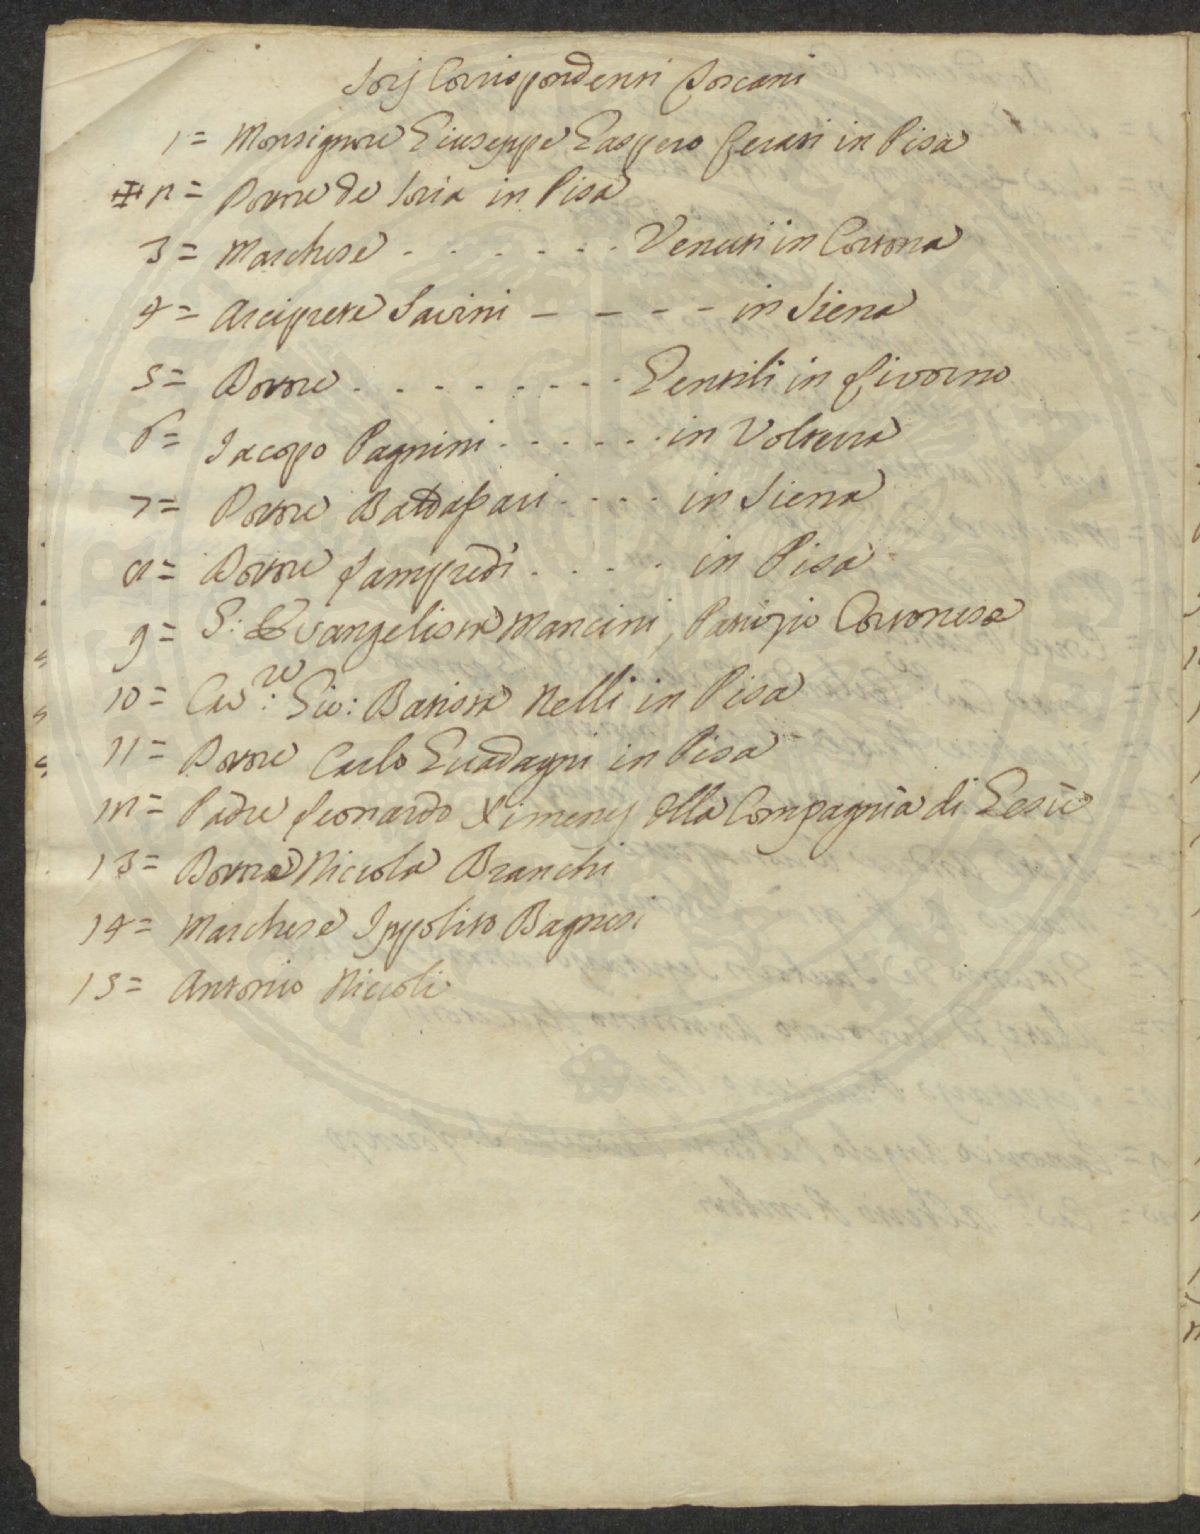 Socij Corrispondenti Toscani
1= Monsignore Giuseppe Gaspero Cerati in Pisa
✠ 2= Dottore de Soria in Pisa
3= Marchese . . . . . . Venuti in Cortona
4= Arciprete Savini – – – – in Siena
5= Dottore . . . . . . . . . Gentili in Livorno
6= Jacopo Pagnini . . . . . . in Volterra
7= Dottore Baldassari . . . . in Siena
8= Dottore Lampredi . . . . in Pisa
9= S: Evangelista Mancini, Patrizio Cortonese
10= Cav:re Gio: Batista Nelli in Pisa
11= Dottore Carlo Guadagni in Pisa
12= Padre Leonardo Ximenes della Compagnia di Gesù
13= Dottore Niccola Branchi
14= Marchese Ippolito Bagnesi
15= Antonio Niccoli